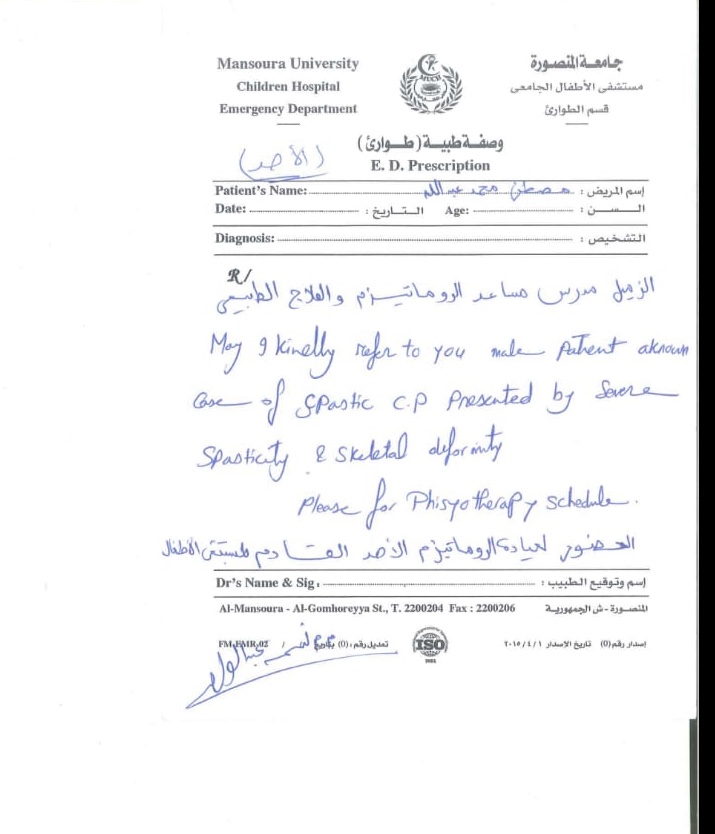 Mansoura University
Children Hospital
Emergency Department
جامعة المنصورة
مستشفى الأطفال الجامعى
قسم الطوارئ
وصفة طبية (طوارئ)
E. D. Prescription
(الأحد)
Patient's Name: مصطفى محمد عبدالله : إسم المريض
Date: : التاريخ Age: : السن
Diagnosis: : التشخيص
R/
الزميل مدرس مساعد الروماتيزم والعلاج الطبيعى
May I kinelly refer to you male Patient aknown
Case of Spastic C.P Presented by Severe
Spasticity & Skeletal deformity
Please for Phisyotherapy schedule.
الحضور لعيادة الروماتيزم الأحد القادم بمستشفى الأطفال
Dr's Name & Sig. : إسم وتوقيع الطبيب
Al-Mansoura - Al-Gomhoreyya St., T. 2200204 Fax : 2200206 المنصورة - ش الجمهورية
FM.EMR.02 تعديل رقم : (0) بتاريخ : / / ISO إصدار رقم (0) تاريخ الإصدار ٢٠١٥/٤/١